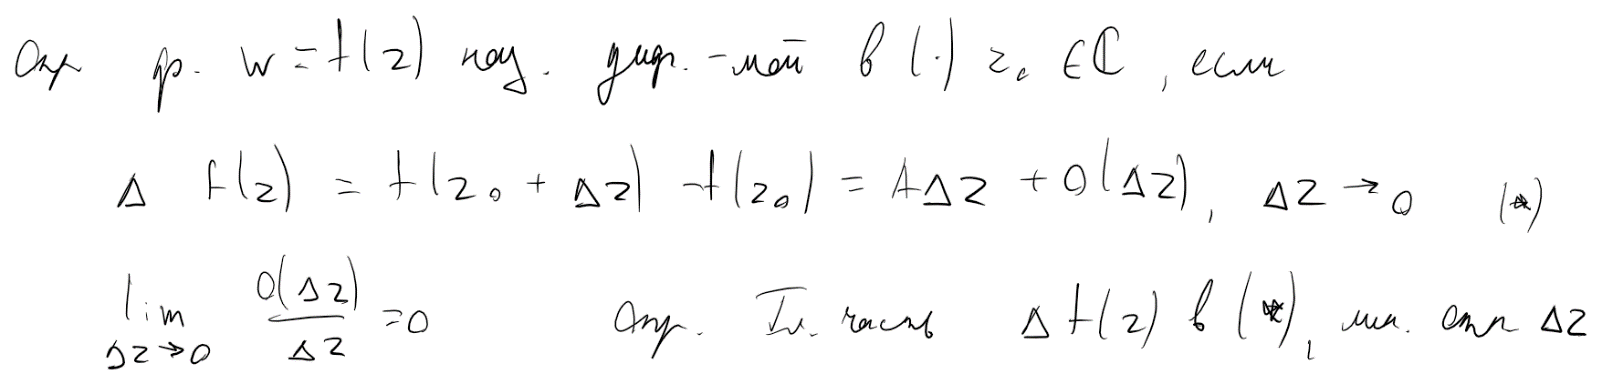 Опр ф. w = f(z) наз. диф.-мой в (·) z₀ ∈ ℂ, если
Δ f(z) = f(z₀ + Δz) - f(z₀) = AΔz + o(Δz), Δz → 0 (*)
lim Δz→0 o(Δz)/Δz = 0 Опр. Гл. часть Δf(z) в (*), лин. отн Δz